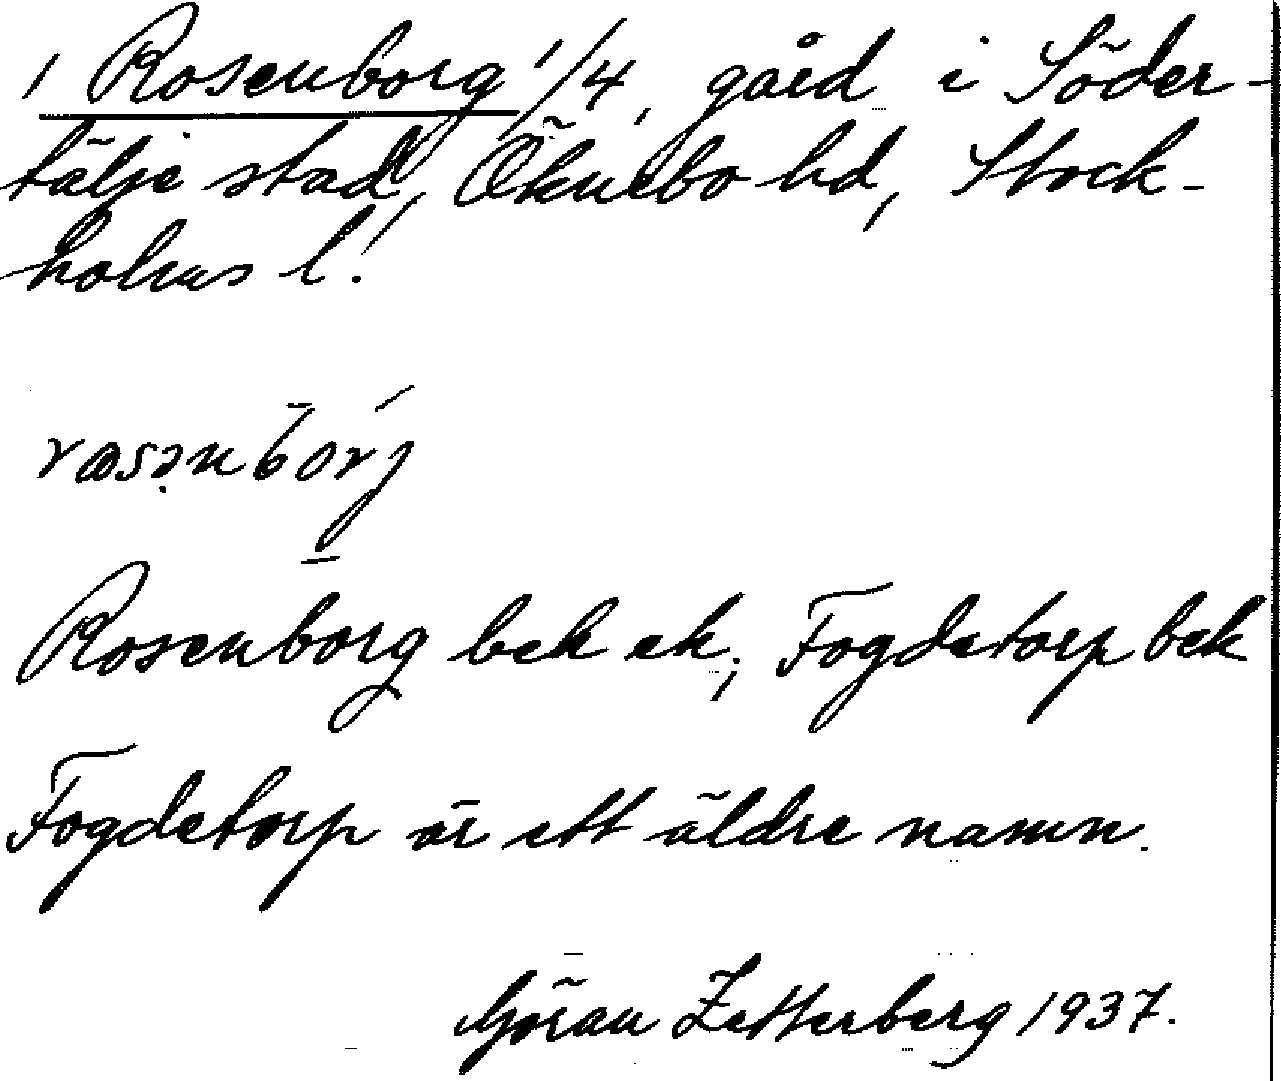 ' Rosenborg' 1/4, gård i Söder-
tälje stad, Öknebo hd, Stock-
holms l.'
rosənbórj
Rosenborg bek ek; Fogdetorp bek
Fogdetorp är ett äldre namn.
Göran Zetterberg 1937.